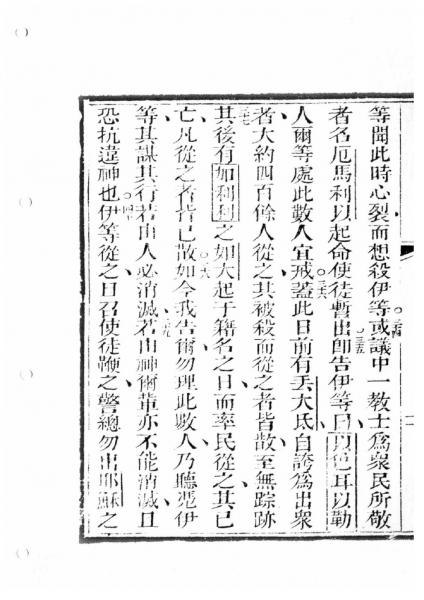 等聞此時心裂而想殺伊等。三四或議中一教士爲衆民所敬
者名厄馬利以起命使徒暫出。三五即告伊等曰以色耳以勒
人爾等處此數人宜戒。三六蓋此日前有丢大氐自誇爲出衆
者大約四百餘人從之其被殺而從之者皆散至無踪跡
三七其後有如利利之如大起于籍名之日而率民從之其已
亡凡從之者皆已散。三八如今我告爾勿理此數人乃聽憑伊
等其謀其行若由人必消滅。三九若由神爾輩亦不能消滅且
恐抗違神也。四十伊等從之日召使徒鞭之警總勿出耶穌之